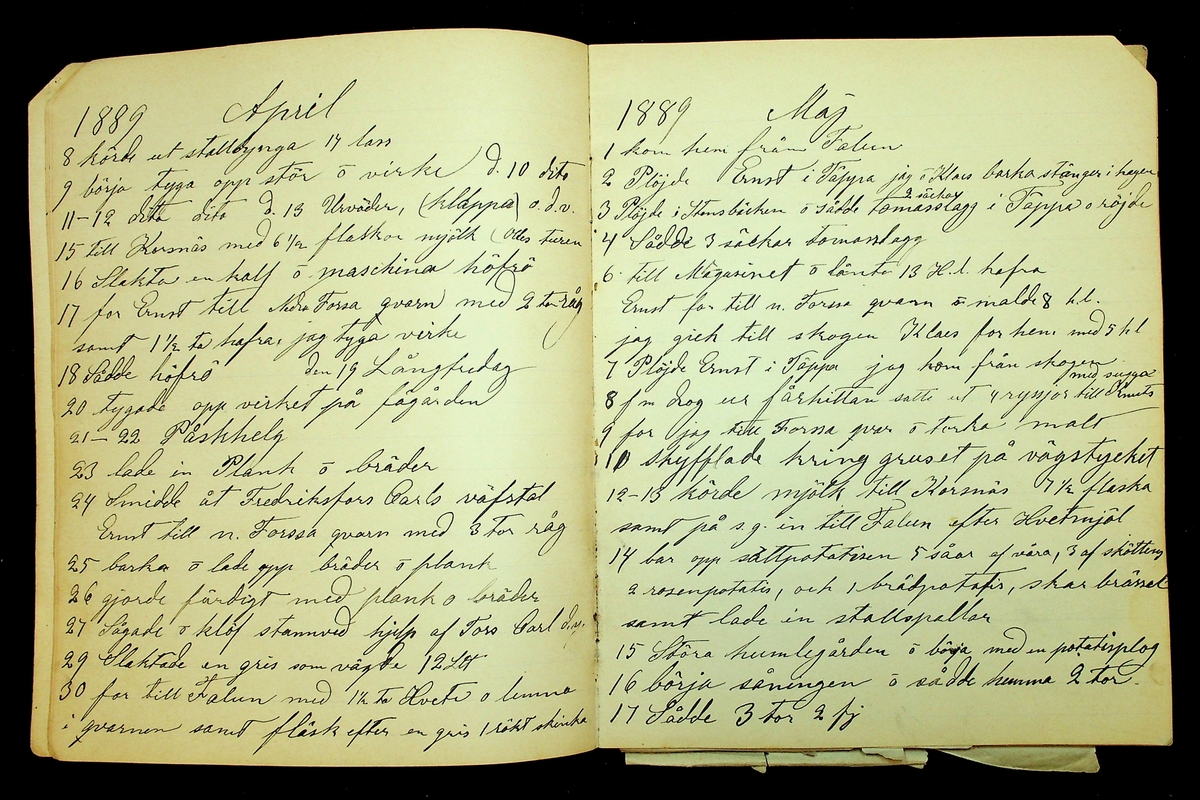 1889 April
8 körde ut stalldynga 17 lass
9 börja tyga opp stör o virke d. 10 dito
11-12 dito dito d. 13 Urväder, (klappa) o.d.v.
15 till Korsnäs med 6 1/2 flaskor mjölk (Olles turen
16 Slakta en kalf o maschina höfrö
17 for Ernst till Nedra Forssa qvarn med 2 tor råg
samt 1 1/2 ta hafra, jag tyga virke
18 Sådde höfrö den 19 Långfredag
20 tygade opp virket på fägården
21-22 Påskhelg
23 lade in Plank o bräder
24 Smidde åt Fredriksfors Carls väfstol
Ernst till n. Forssa qvarn med 3 tor råg
25 barka o lade opp bräder o plank
26 gjorde färdigt med plank o bräder
27 Sågade o klöf stamved hjelp af Tors Carl
29 Slaktade en gris som vägde 12
30 for till Falun med 1 1/2 ta Hvete o lemna
i qvarnen samt fläsk efter en gris 1 rökt skinka
1889 Maj
1 kom hem från Falun
2 Plöjde Ernst i Täppa jag o Klaes barka stänger i hagen
2 säckar
3 Plöjde i Stensbäcken o sådde tomasslagg i Täppa o röjde
4 Sådde 3 säckar tomasslagg
6 till Magasinet o länte 13 H.l. hafra
Ernst for till n. Forssa qvarn o malde 8 h.l.
jag gick till skogen Klaes for hem med 5 hl
7 Plöjde Ernst i Täppa jag kom från skogen
med sugga
8 fm drog ur fårkittan satte ut 4 ryssjor till Knuts
9 for jag till Forssa qvar o torka malt
10 skyfflade kring gruset på vägstycket
12-13 körde mjölk till Korsnäs 7 1/2 flaska
samt på s.g. in till Falun efter Hvetmjöl
14 bar opp sättpotatisen 5 såar af våra, 3 af
2 rosenpotatis, och 1 brådpotatis, skar
samt lade in stallspallar
15 Störa humlegården o börja med en potatisplog
16 börja såningen o sådde hemma 2 tor.
17 Sådde 3 tor 2 fj